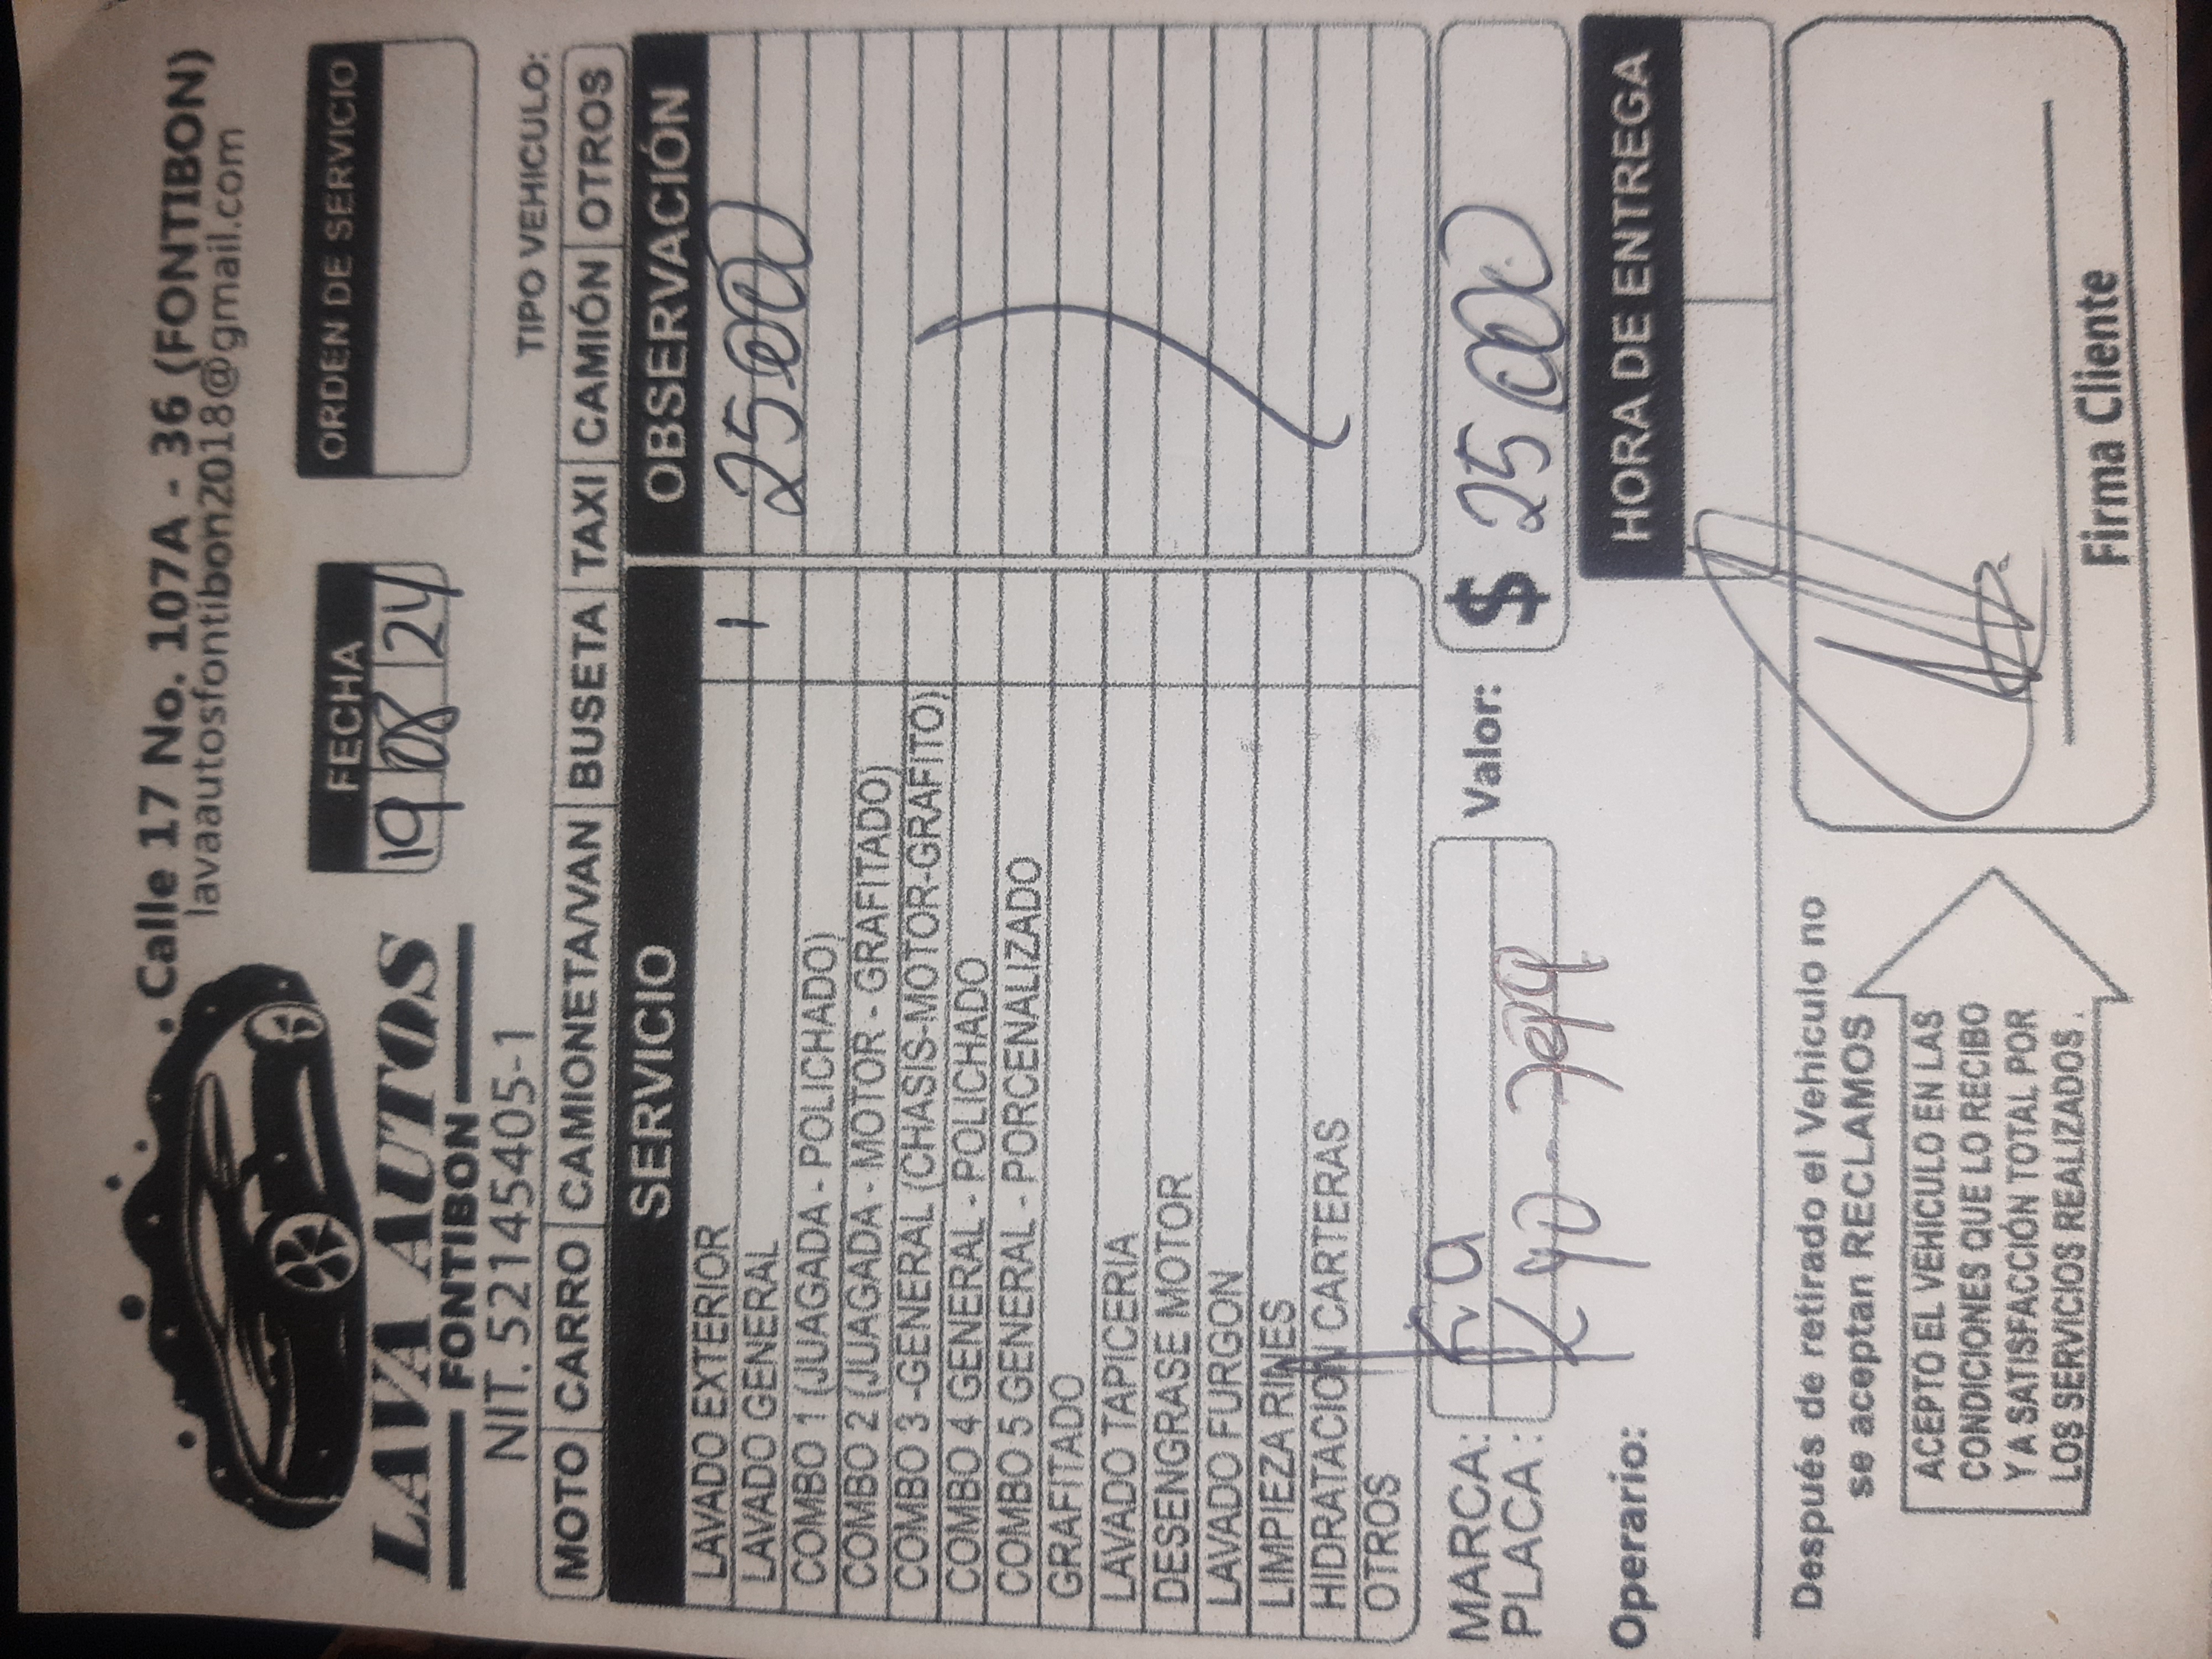 Calle 17 No. 107A - 36 (FONTIBON)
lavaautosfontibon2018@gmail.com
LAVA AUTOS
FONTIBON
NIT. 52145405-1
FECHA
19 08 24
ORDEN DE SERVICIO
TIPO VEHICULO:
MOTO CARRO CAMIONETA/VAN BUSETA TAXI CAMIÓN OTROS
SERVICIO OBSERVACIÓN
LAVADO EXTERIOR 1 25000
LAVADO GENERAL
COMBO 1 (JUAGADA - POLICHADO)
COMBO 2 (JUAGADA - MOTOR - GRAFITADO)
COMBO 3 -GENERAL (CHASIS-MOTOR-GRAFITO)
COMBO 4 GENERAL - POLICHADO
COMBO 5 GENERAL - PORCENALIZADO
GRAFITADO
LAVADO TAPICERIA
DESENGRASE MOTOR
LAVADO FURGON
LIMPIEZA RINES
HIDRATACION CARTERAS
OTROS
MARCA:
PLACA:
Valor: $ 25000
Operario:
HORA DE ENTREGA
Después de retirado el Vehiculo no
se aceptan RECLAMOS
ACEPTO EL VEHICULO EN LAS
CONDICIONES QUE LO RECIBO
Y A SATISFACCIÓN TOTAL POR
LOS SERVICIOS REALIZADOS.
Firma Cliente